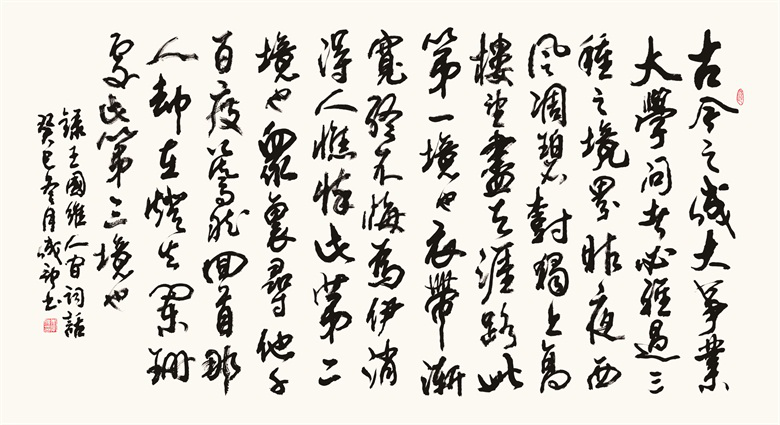 古今之成大事業
大學問者必經過三
種之境界昨夜西
風凋碧樹獨上高
樓望盡天涯路此
第一境也衣帶漸
寬終不悔為伊消
得人憔悴此第二
境也眾裏尋他千
百度驀然回首那
人却在燈火闌珊
處此第三境也
錄王國維人间詞話
癸巳冬月成书